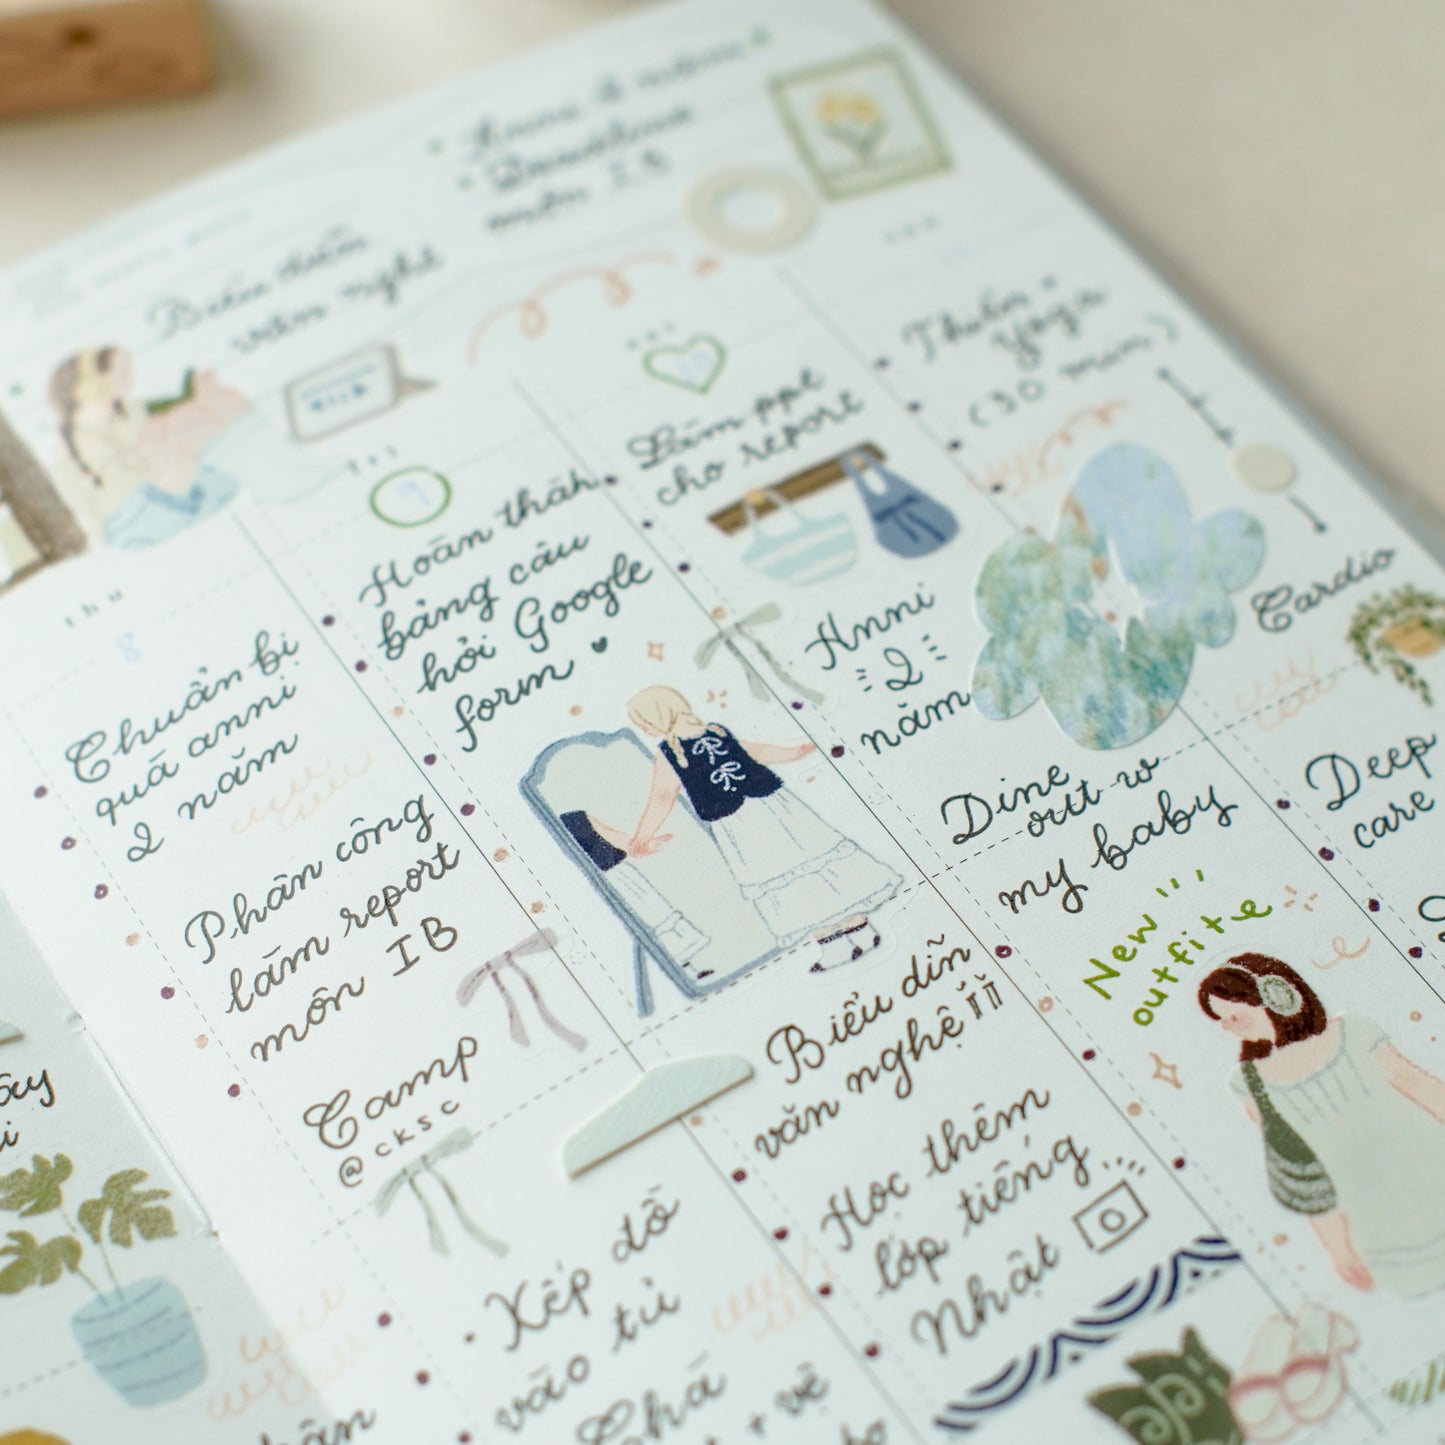 Biểu diễn
văn nghệ
môn IB
thu
8
Chuẩn bị
quà anni
2 năm
Phân công
làm report
môn IB
Camp
@cksc
9
Hoàn thành
bảng câu
hỏi Google
form
• Xếp đồ
vào tủ
Làm ppt
cho report
Anni
2
năm
Biểu diễn
văn nghệ
Học thêm
lớp tiếng
Nhật
+ vẽ
Thiền +
Yoga
(30 min)
Cardio
Dine
out w
my baby
New
outfite
Deep
care